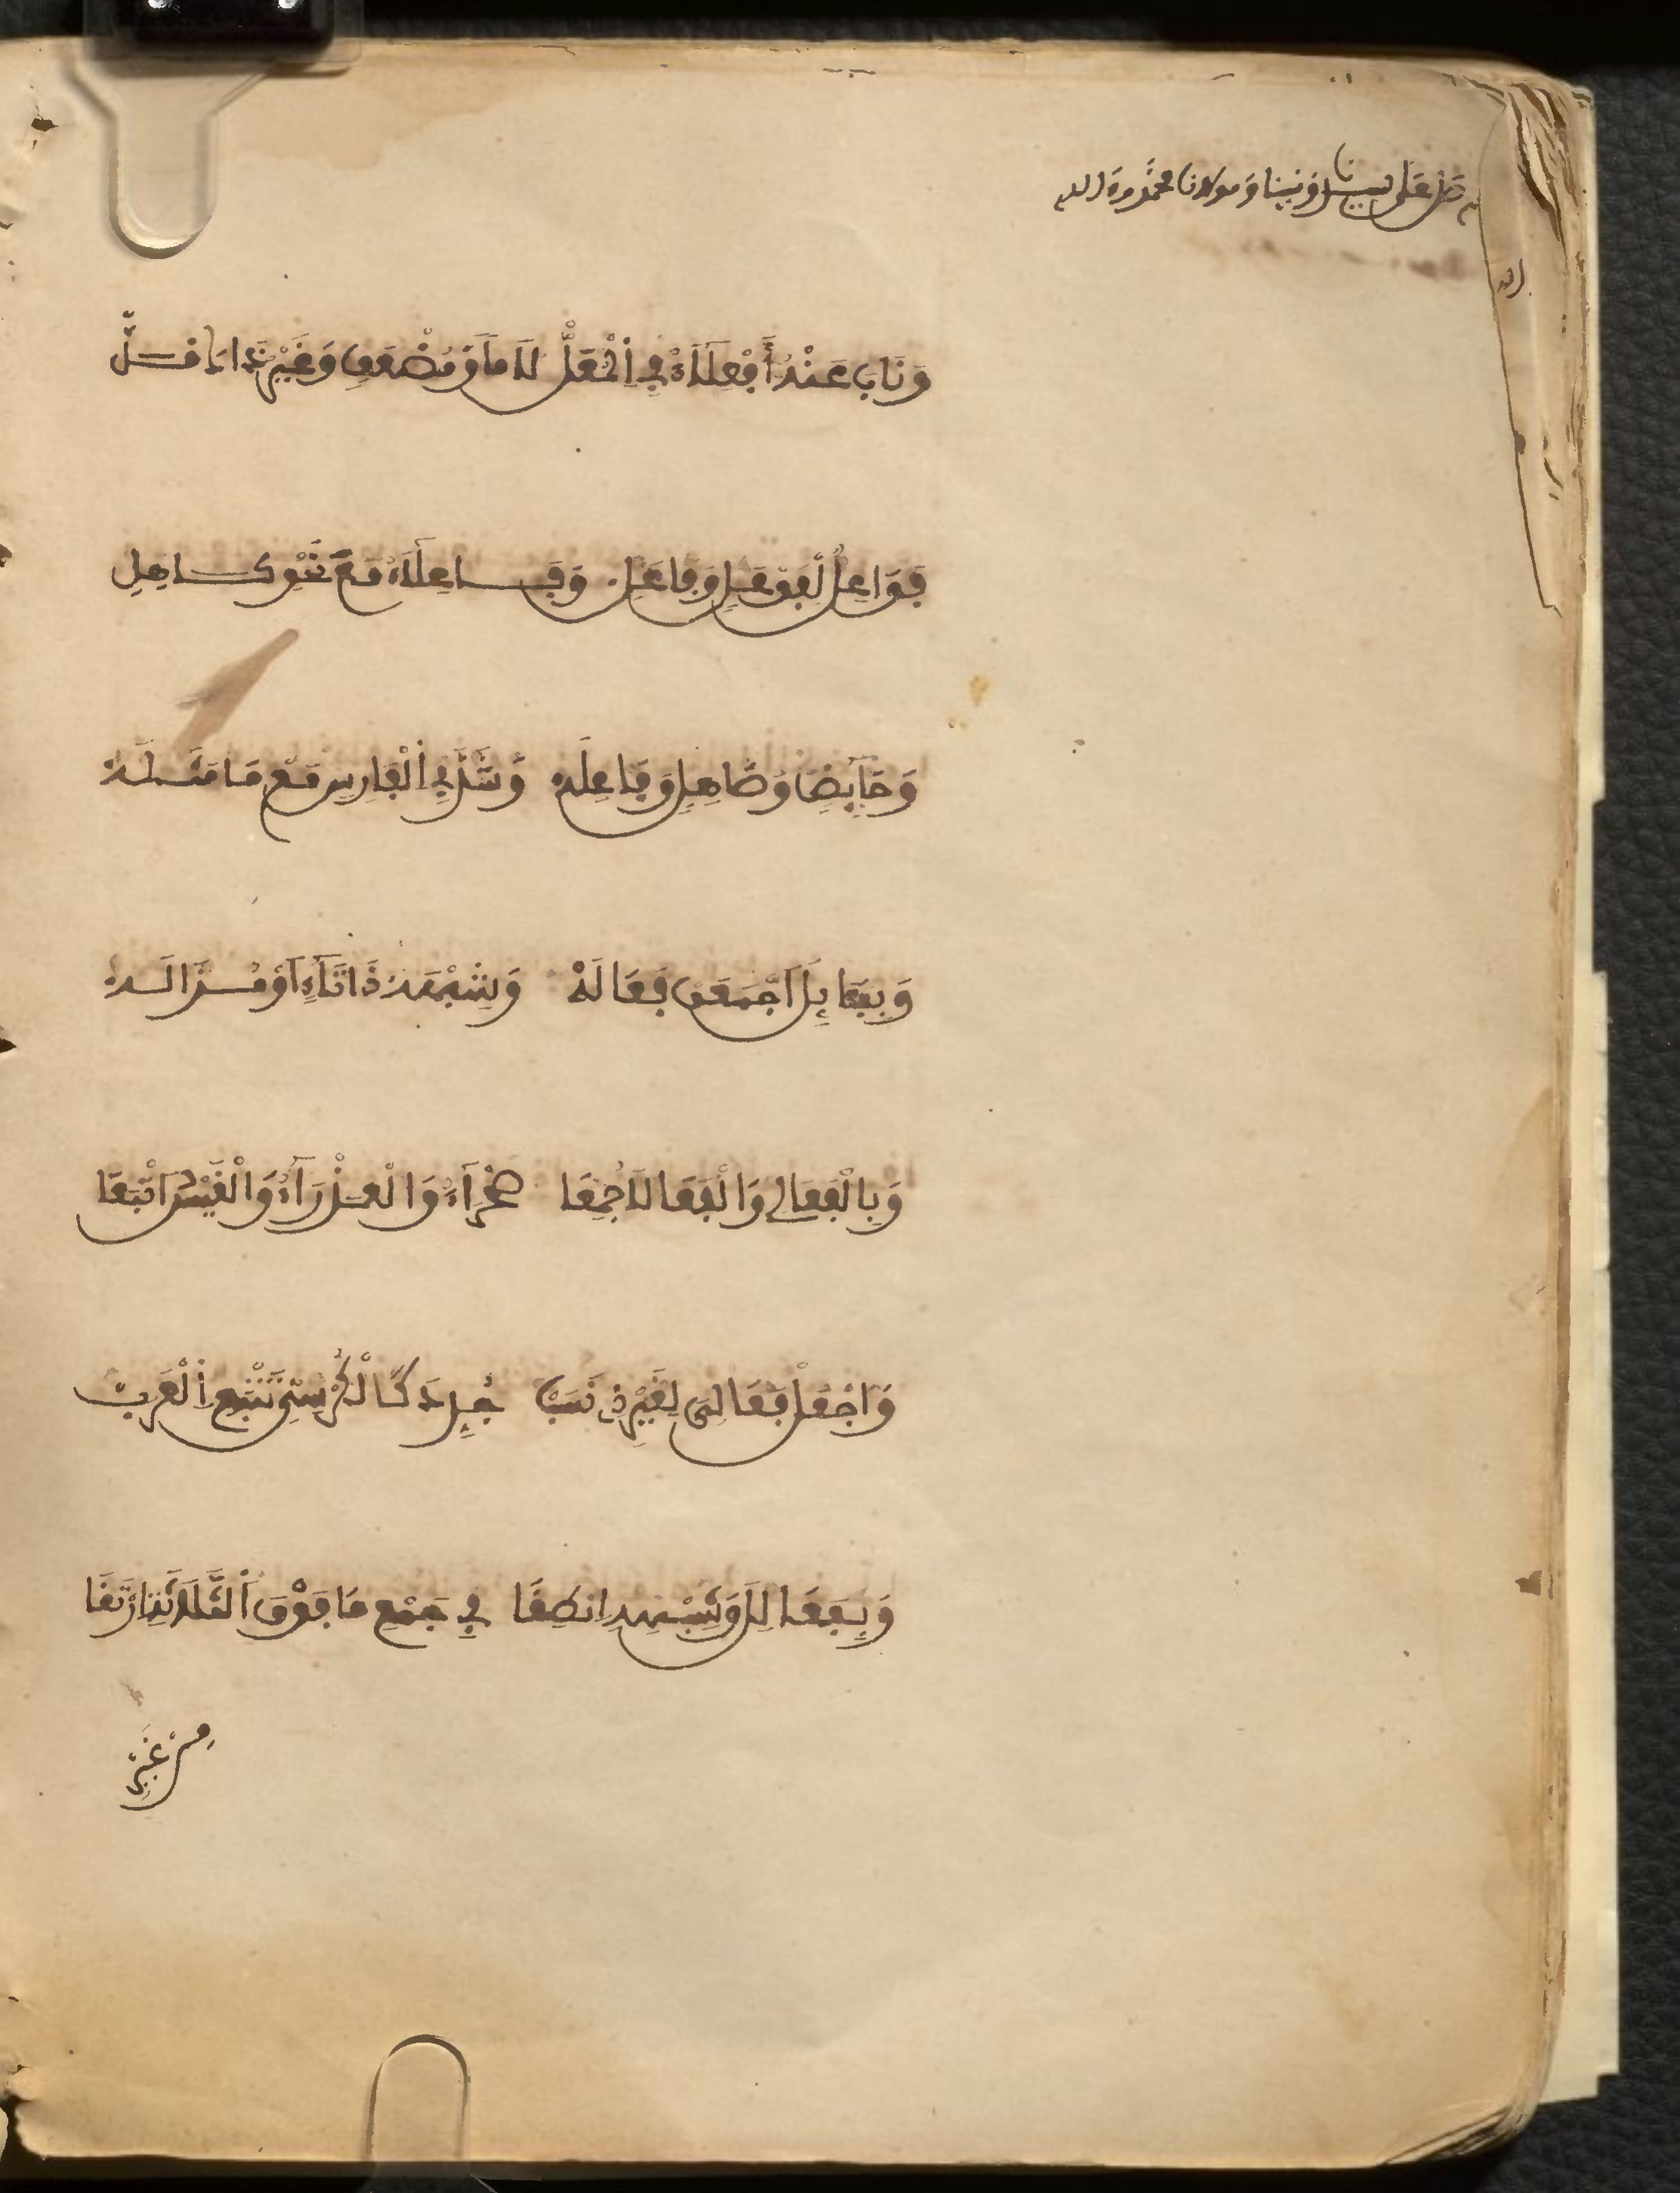 صل على سيدنا ونبينا ومولانا محمد وءاله
وَنَابَ عَنْهُ أَفْعِلَاءُ فِي الْمُعَلّْ لَاماً وَمُضْعَفٍ وَغَيْرُ ذَاكَ قَلّْ
فَوَاعِلٌ لِفَوْعَلٍ وَفَاعَلِ وَفَاعِلَاءَ مَعَ نَحْوِ كَاهِلِ
وَحَائِضٍ وَصَاهِلٍ وَفَاعِلَهْ وَشَذَّ فِي الْفَارِسِ مَعْ مَا مَثَلَهْ
وَبِفَعَائِلَ اجْمَعَنْ فَعَالَهْ وَشِبْهَهُ ذَا تَاءٍ أَوْ مُزَالَهْ
وَبِالْفَعَالِي وَالْفَعَالَى جُمِعَا صَحْرَاءُ وَالْعَذْرَاءُ وَالْقَيْسَ اتْبَعَا
وَاجْعَلْ فَعَالِيَّ لِغَيْرِ ذِي نَسَبْ جُدِّدَ كَالْكُرْسِيِّ تَتْبَعِ الْعَرَبْ
وَبِفَعَالِلَ وَشِبْهِهِ انْطِقَا فِي جَمْعِ مَا فَوْقَ الثَّلَاثَةِ ارْتَقَى
مِنْ غَيْرِ